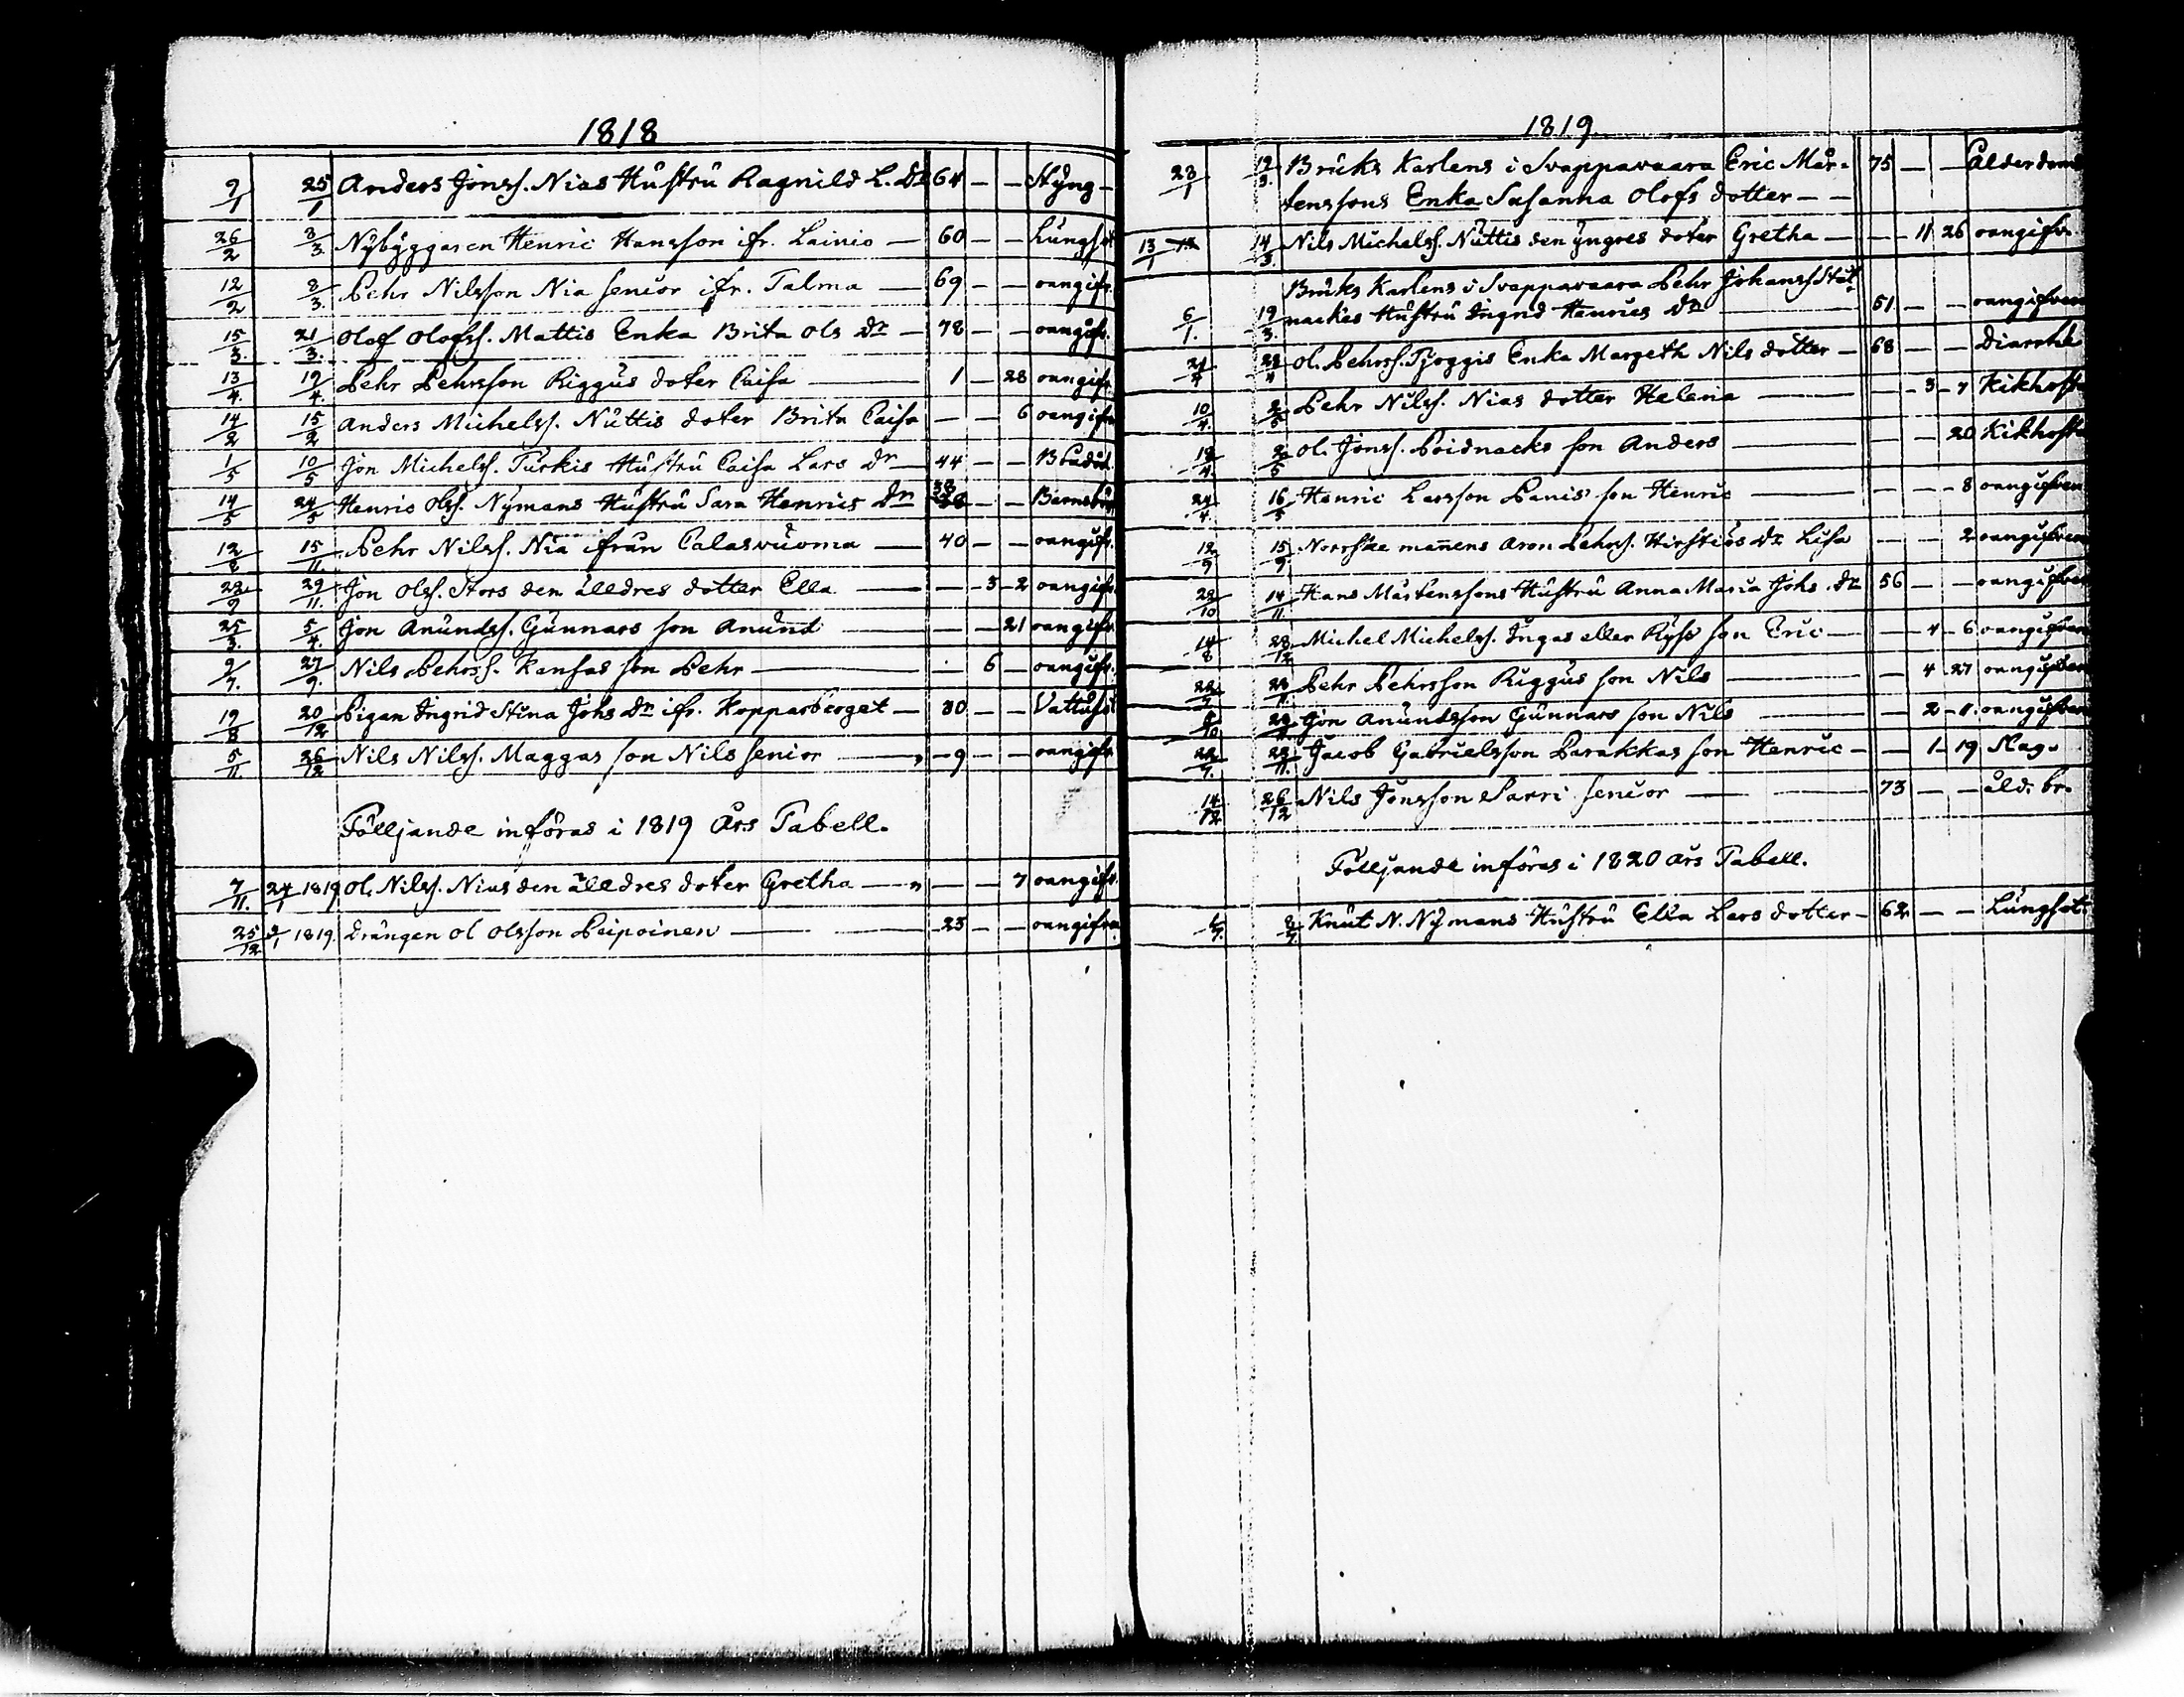 1818
9/1 25/1 Anders Jonss. Nias Hustru Ragnild L. Dr 64 — — Styng —
26/2 3/3 Nybyggaren Henric Hansson ifr. Lainio — 60 — — Lungsot
12/2 8/3 Pehr Nilsson Nia senior ifr. Talma — 69 — — oangifv.
15/3. 21/3. Olof Olofss. Mattis Enka Brita Ols Dr — 78 — — oangifv.
13/4. 19/4. Pehr Pehrsson Riggus doter Caisa — 1 — 28 oangifv.
14/2 15/2 Anders Michelss. Nuttis doter Brita Caisa — — 6 oangifv
1/5 10/5 Jon Michelss. Turkis Hustru Caisa Lars Dr — 44 — —
14/5 24/5 Henric Ols. Nymans Hustru Sara Henrics Dr 38 — — Barnsbörd
12/8 15/11. Pehr Nilss. Nia ifrån Calasvuoma — 40 — — oangifv.
22/9 29/11. Jon Olss. Stors den älldres dotter Ella — — 3 — 2 oangifv.
25/3. 5/4. Jon Anundss. Gunnars son Anund — — — 21 oangifv.
9/7. 27/9. Nils Pehrss. Kansas son Pehr — . 6 — oangifv.
19/8 20/12 Pigan Ingrid Stina Johs Dr ifr. Kopparberget — 30 — — Vattusot
5/11. 26/12 Nils Nilss. Maggas son Nils senior — 9 — — oangifv
Följjande införas i 1819 Års Tabell.
7/11. 24/1 1819 Ol. Nilss. Nias den älldres doter Gretha — — — 7 oangifv.
25/12 2/1 1819. Drängen Ol Olsson Peipoinen — 23 — — oangifva
1819
23/1 12/3. Bruks Karlens i Svappavaara Eric Mår-
tenssons Enka Susanna Olofs dotter — — 75 — — Ålderdoms
13/1 14/3. Nils Michelss. Nuttis den yngres doter Gretha — — 11 26 oangifv.
Bruks Karlens i Svappavaara Pehr Johanss Stål-
6/1. 19/3. nackes Hustru Ingrid Henrics Dr — 51 — — oangifven
21/2 22/4 Ol. Pehrss. Tjoggis Enka Margeth Nils dotter — 68 — — Diarrhé
10/4. 2/5 Pehr Nilss. Nias dotter Helena — — 3 — 7 Kikhosta
18/4 2/5 Ol. Jonss. Poidnacks son Anders — — — 20 Kikhosta
24/4 16/5 Henric Larsson Panis son Henric — — — 8 oangifven
12/9 15/9. Norrske mannens Aron Pehrs. Hirstiös Dr Lisa — — 2 oangifven
28/10 14/11. Hans Mårtenssons Hustru Anna Maria Johs. Dr 56 — — oangifven
14/8 28/12 Michel Michelss. Ingas eller Ryss son Eric — — 4 — 6 oangifven
22/9 28/11. Pehr Pehrsson Riggus son Nils — — 4 27 oangifven
8/10 28/11. Jon Anundsson Gunnars son Nils — — 2 — 11. oangifven
22/7. 28/11. Jacob Gabrielsson Parakkas son Henric — — 1 — 19 Slag.
14/12 26/12 Nils Jonsson Sarri senior — — 73 — — åld. br.
Följjande införes i 1820 års Tabell.
6/7. 2/7. Knut N. Nymans Hustru Ella Lars dotter — 62 — — Lungsot.